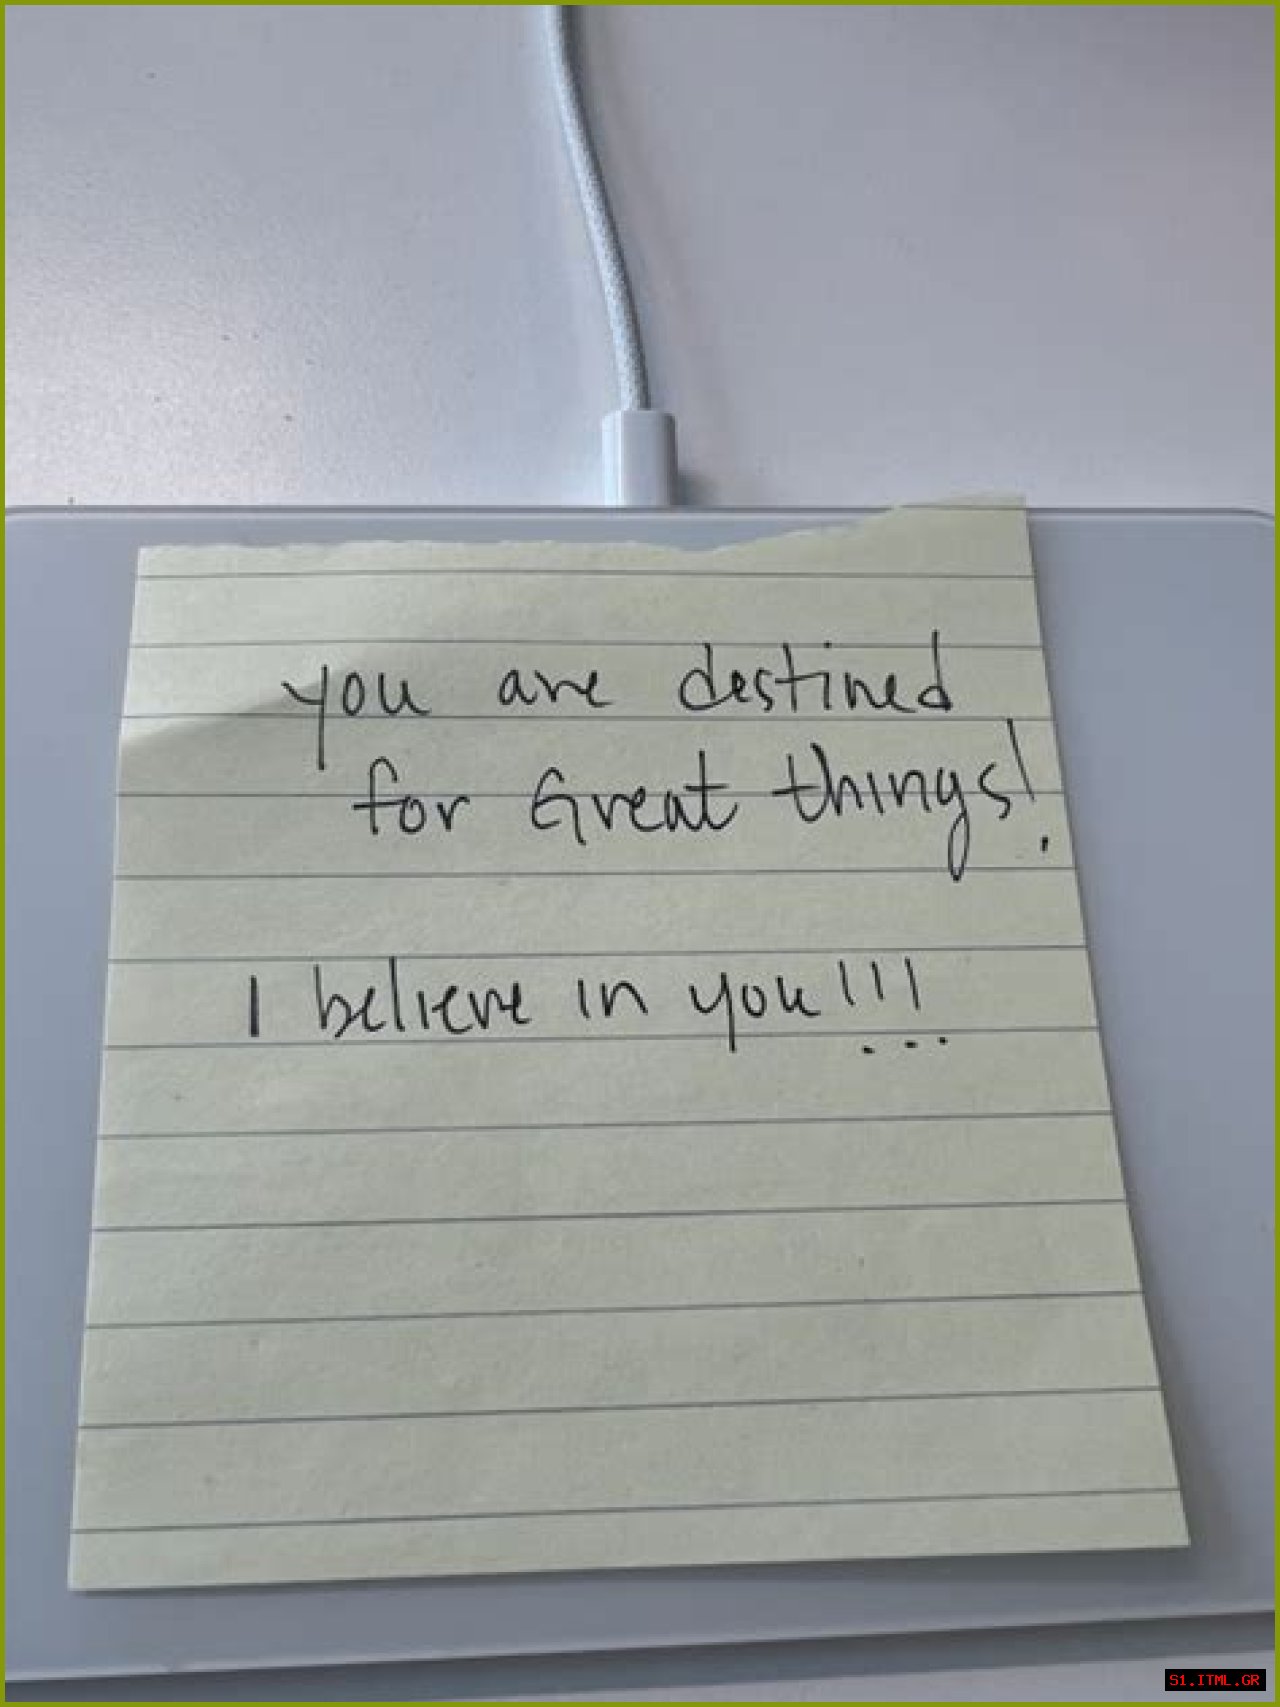 you are destined
for Great things!
I believe in you!!!
S1.ITML.GR